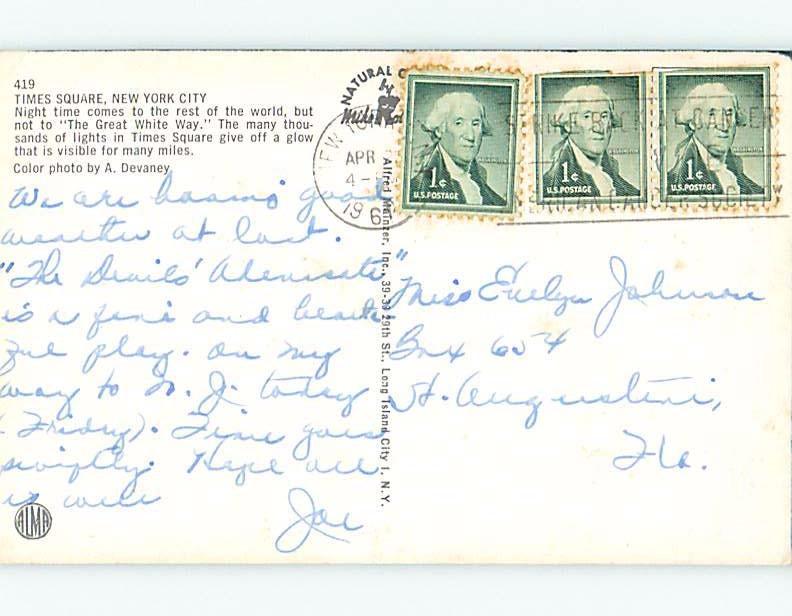 419
TIMES SQUARE, NEW YORK CITY
Night time comes to the rest of the world, but
not to "The Great White Way." The many thou-
sands of lights in Times Square give off a glow
that is visible for many miles.
Color photo by A. Devaney
We are having good
weather at last.
"The Devils' Advocate"
is a fine and beauti
ful play. On my
way to N. J. today
(Friday). Time goes
swiftly. Hope all
is well
Joe
ALMA
NATURAL C
by
APR
4
196
1¢
U.S. POSTAGE
1¢
U.S. POSTAGE
1¢
U.S. POSTAGE
CANCER
CANCER SOCIETY
Alfred Mainzer, Inc., 39-33 29th St., Long Island City 1, N.Y.
Miss Evelyn Johnson
Box 654
St. Augustine,
Fla.